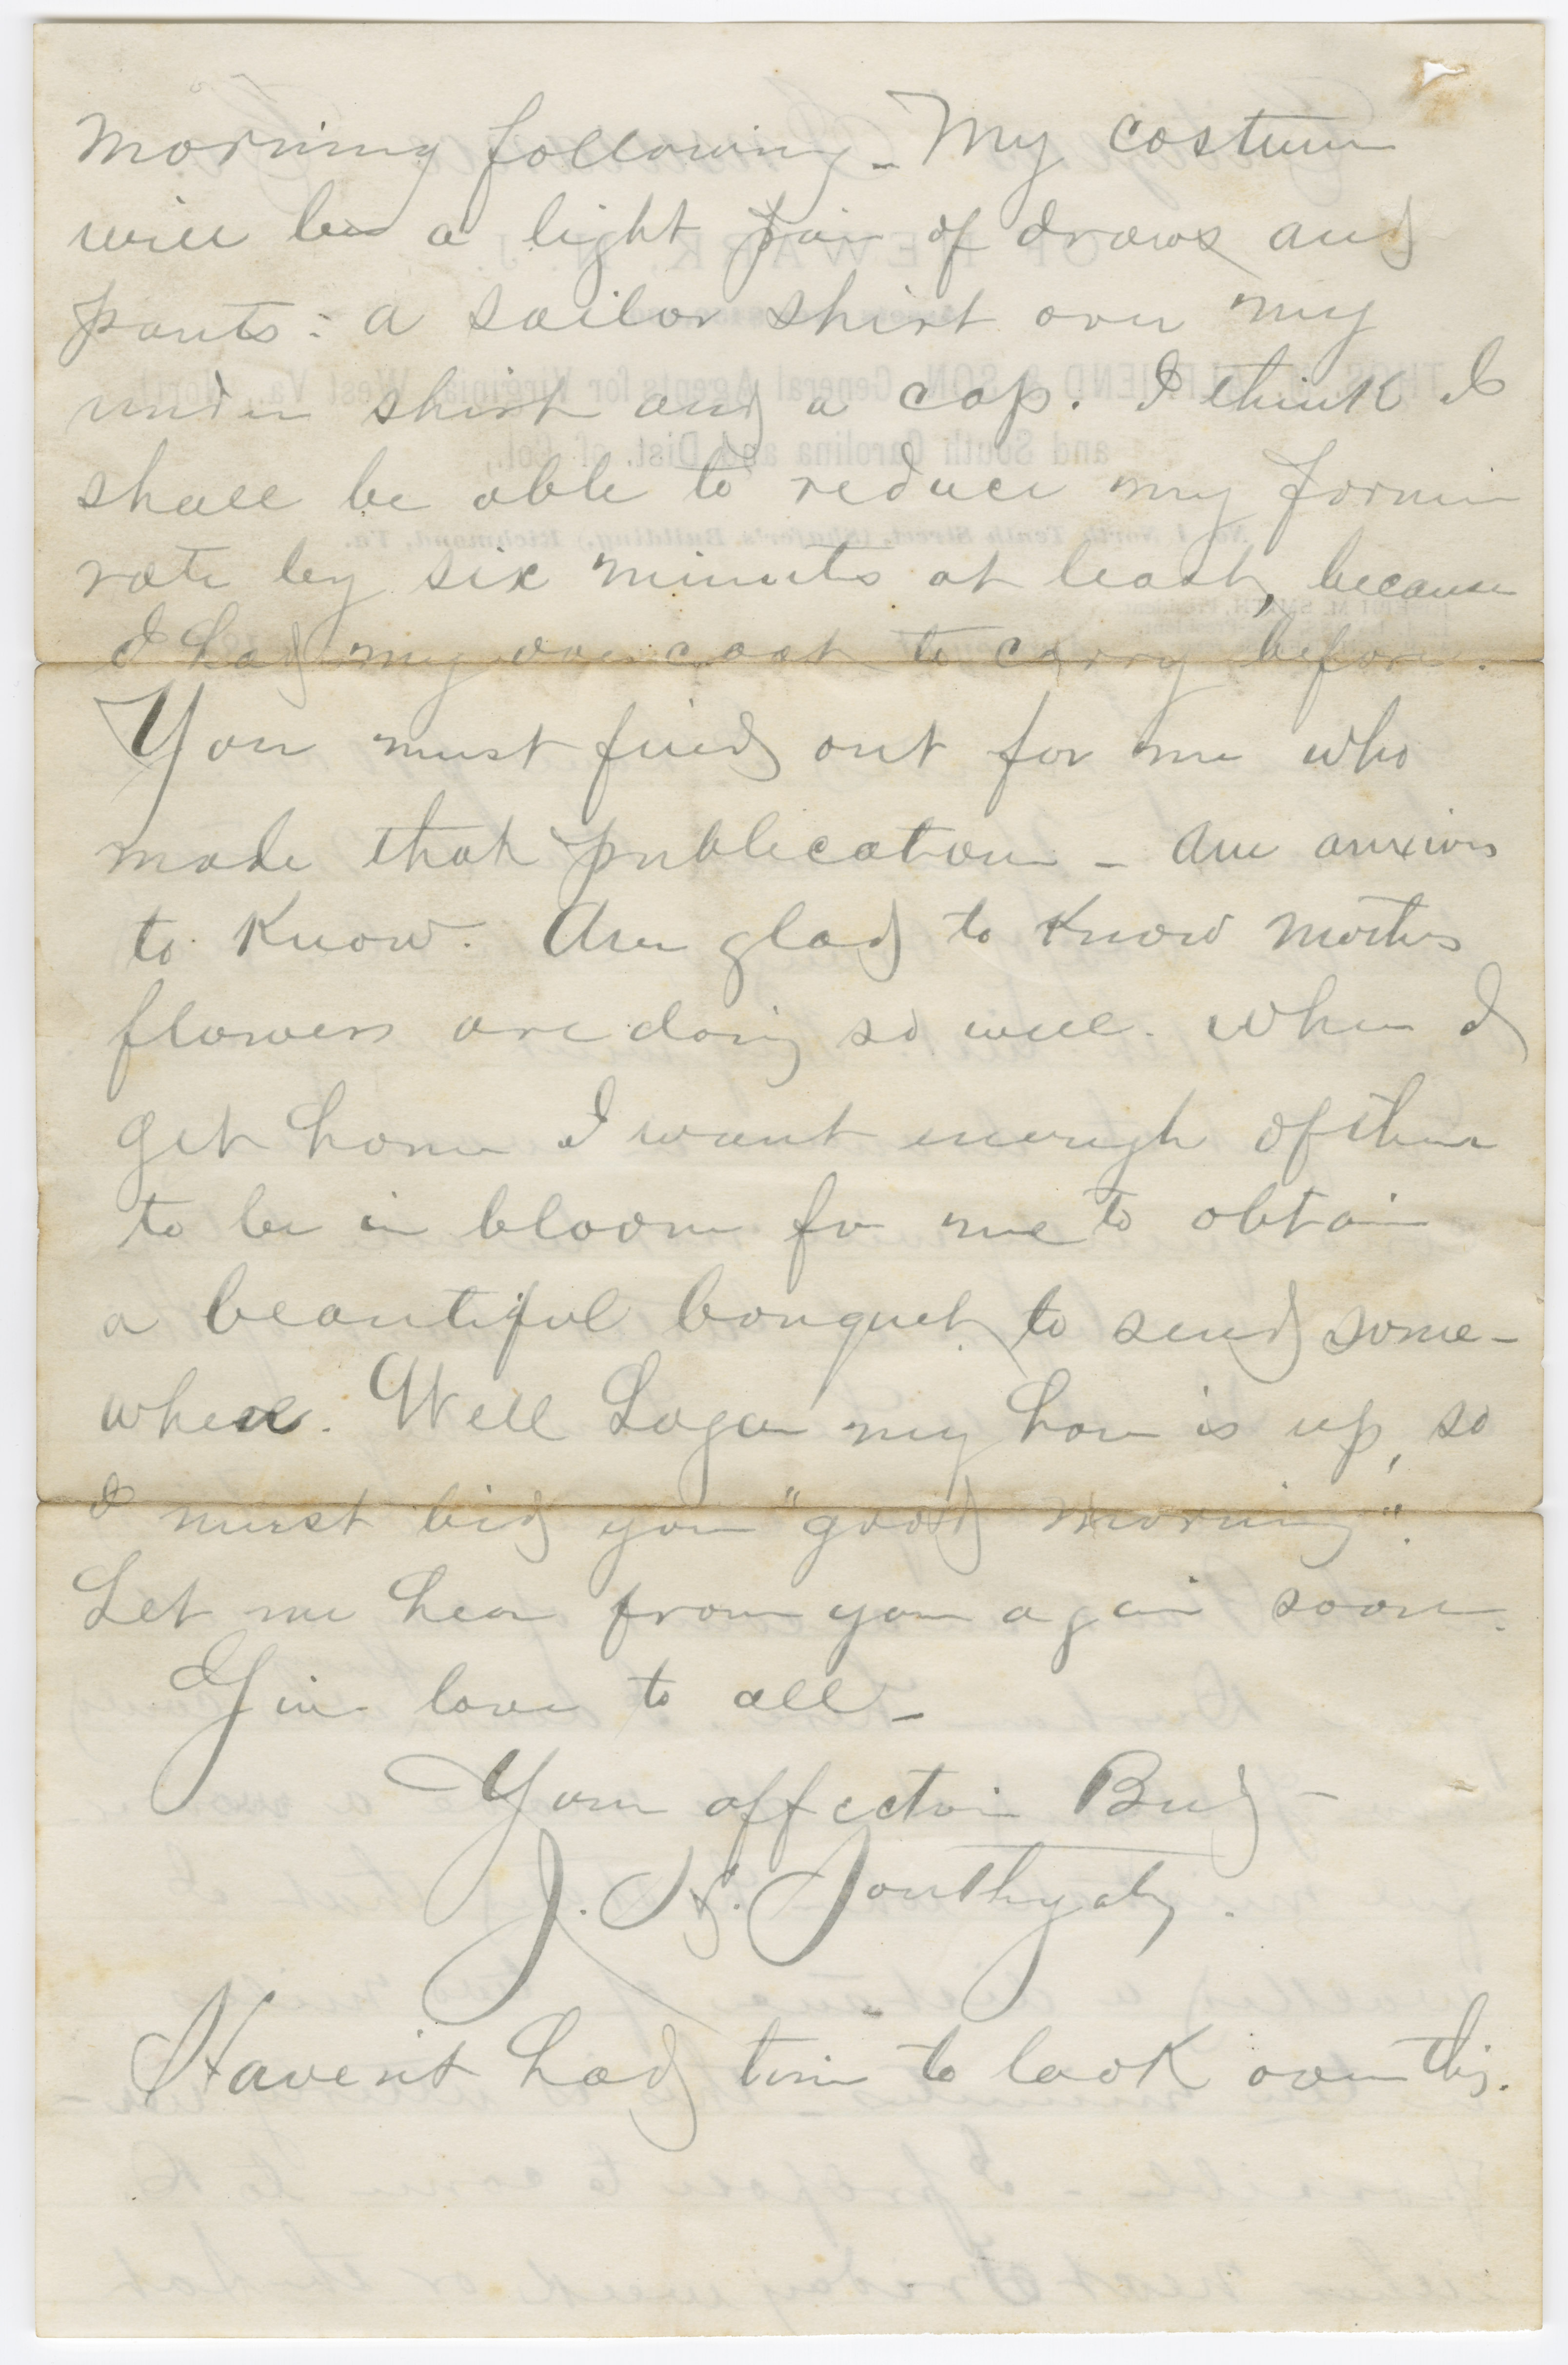 morning following - My costume
will be a light pair of draws and
pants: a sailor shirt over my
under shirt and a cap. I think I
shall be able to reduce my former
rate by six minutes at least, because
I had my overcoat to carry before.
You must find out for me who
made that publication - Am anxious
to know. Am glad to know mothers
flowers are doing so well. When I
get home I want enough of them
to be in bloom for me to obtain
a beautiful bouquet to send some-
where. Well Logan my hour is up, so
I must bid you "good morning".
Let me hear from you again soon.
Give love to all -
Your affection Bud -
J. H. Southgate.
Haven't had time to look over this.